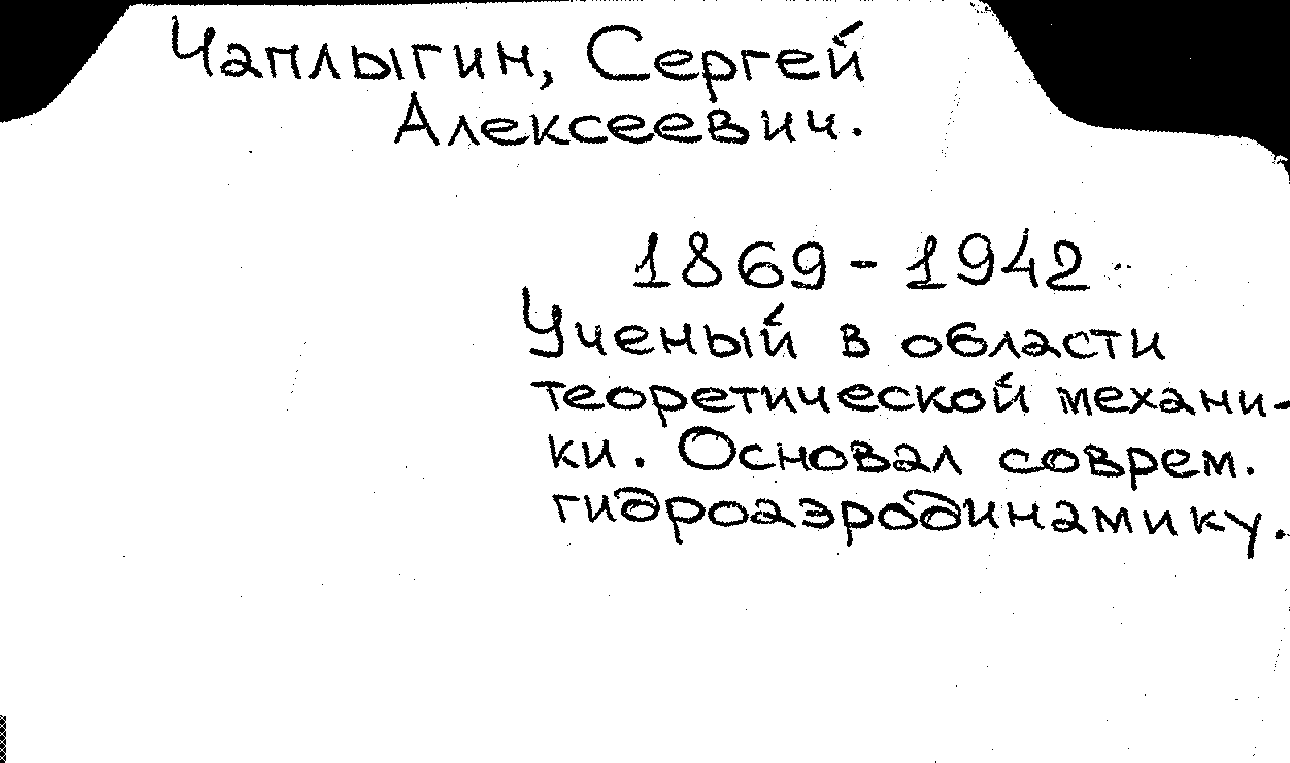 Чаплыгин, Сергей
Алексеевич.
1869-1942
Ученый в области
теоретической механи-
ки. Основал соврем.
гидроаэродинамику.